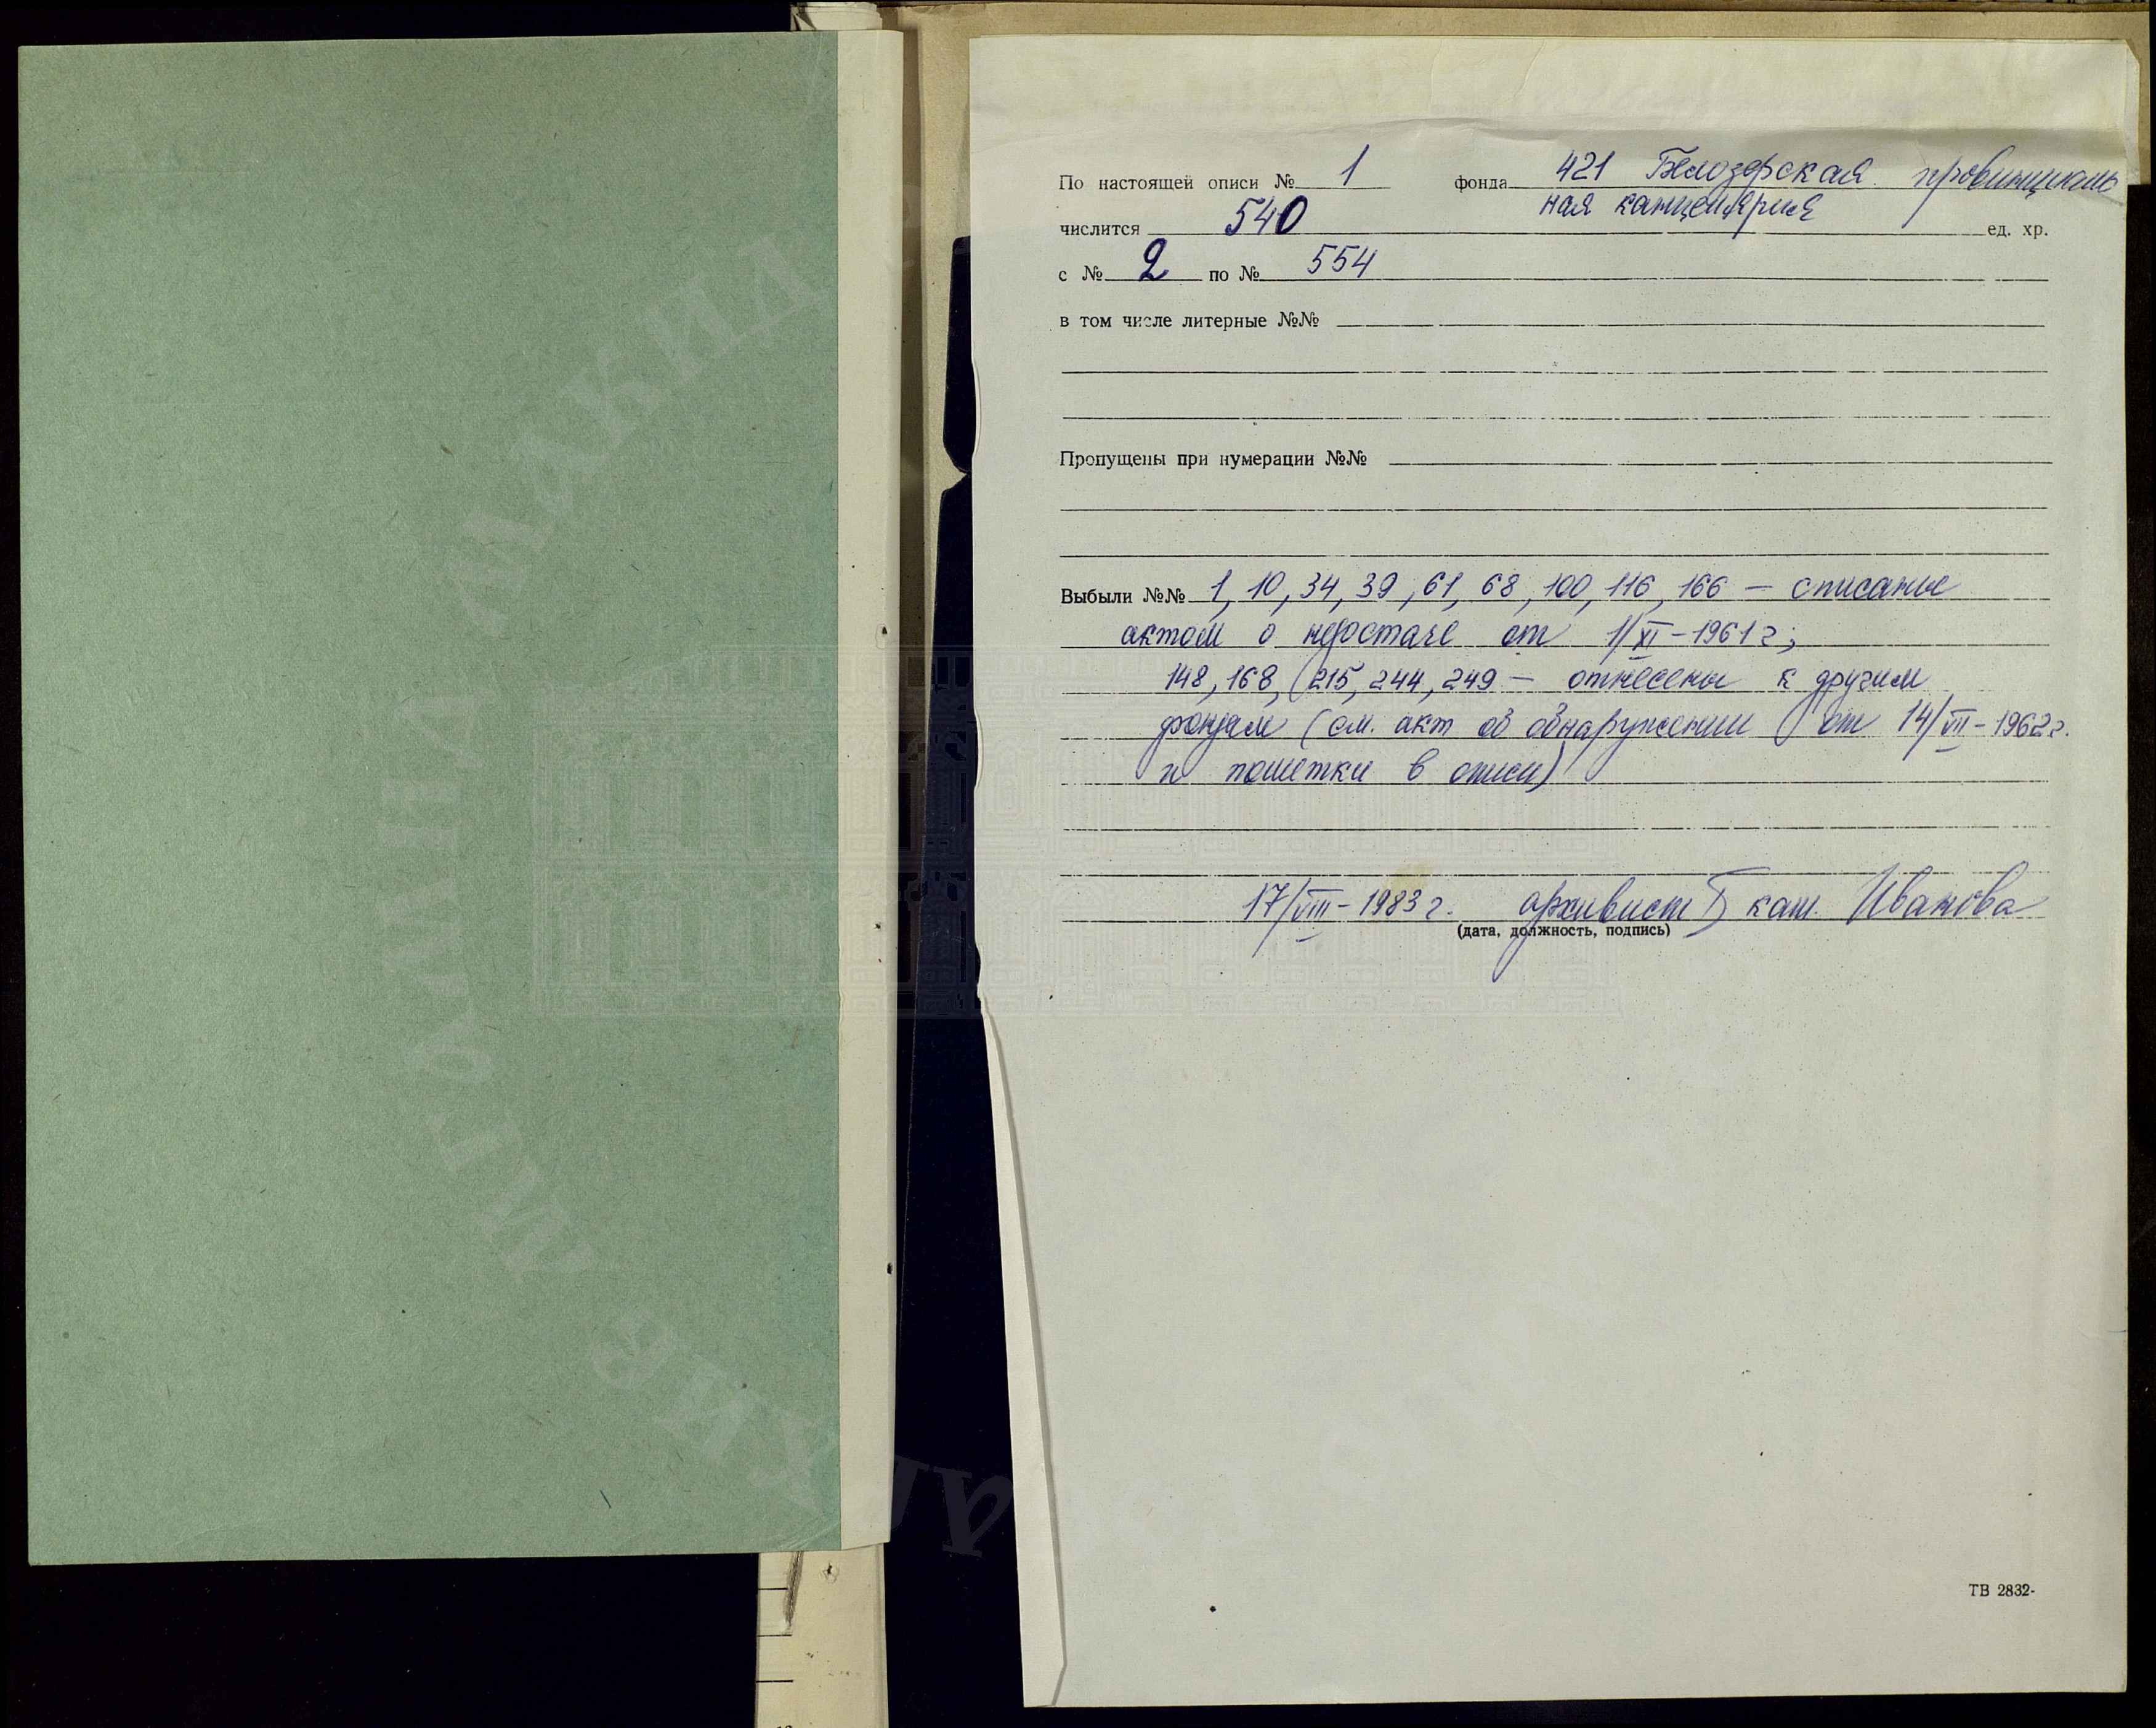 По настоящей описи № 1 фонда 421 Белозерская провинциаль
ная канцелярия
числится 540 ед. хр.
с № 2 по № 554
в том числе литерные №№
Пропущены при нумерации №№
Выбыли №№ 1, 10, 34, 39, 61, 68, 100, 116, 166 — списаны
актом о недостаче от 1/XI-1961 г;
148, 168, 215, 244, 249 — отнесены к другим
фондам (см. акт об обнаружении от 14/VII-1962 г.
и пометки в описи)
17/VIII-1983 г. архивист I кат. Иванова
(дата, должность, подпись)
ТВ 2832-